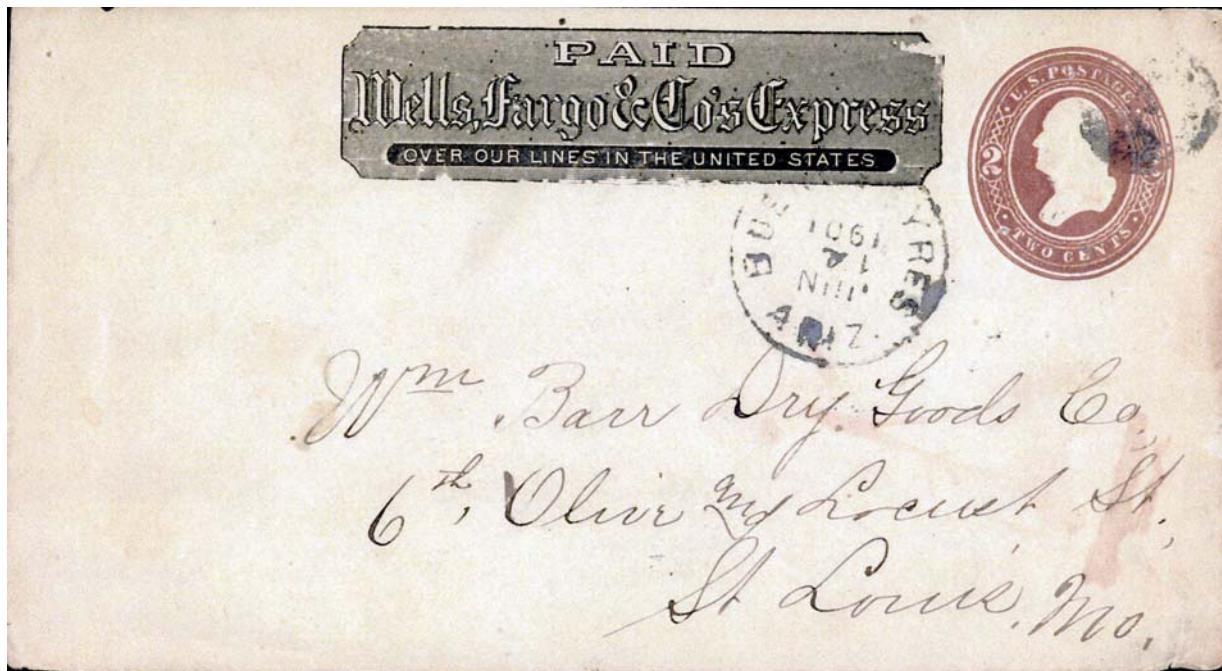 PAID
Wells, Fargo & Co's Express
OVER OUR LINES IN THE UNITED STATES
U.S. POSTAGE
2 2
TWO CENTS
JUN
1901
ARIZ.
Wm Barr Dry Goods Co.,
6th, Olive and Locust St.,
St Louis, Mo.